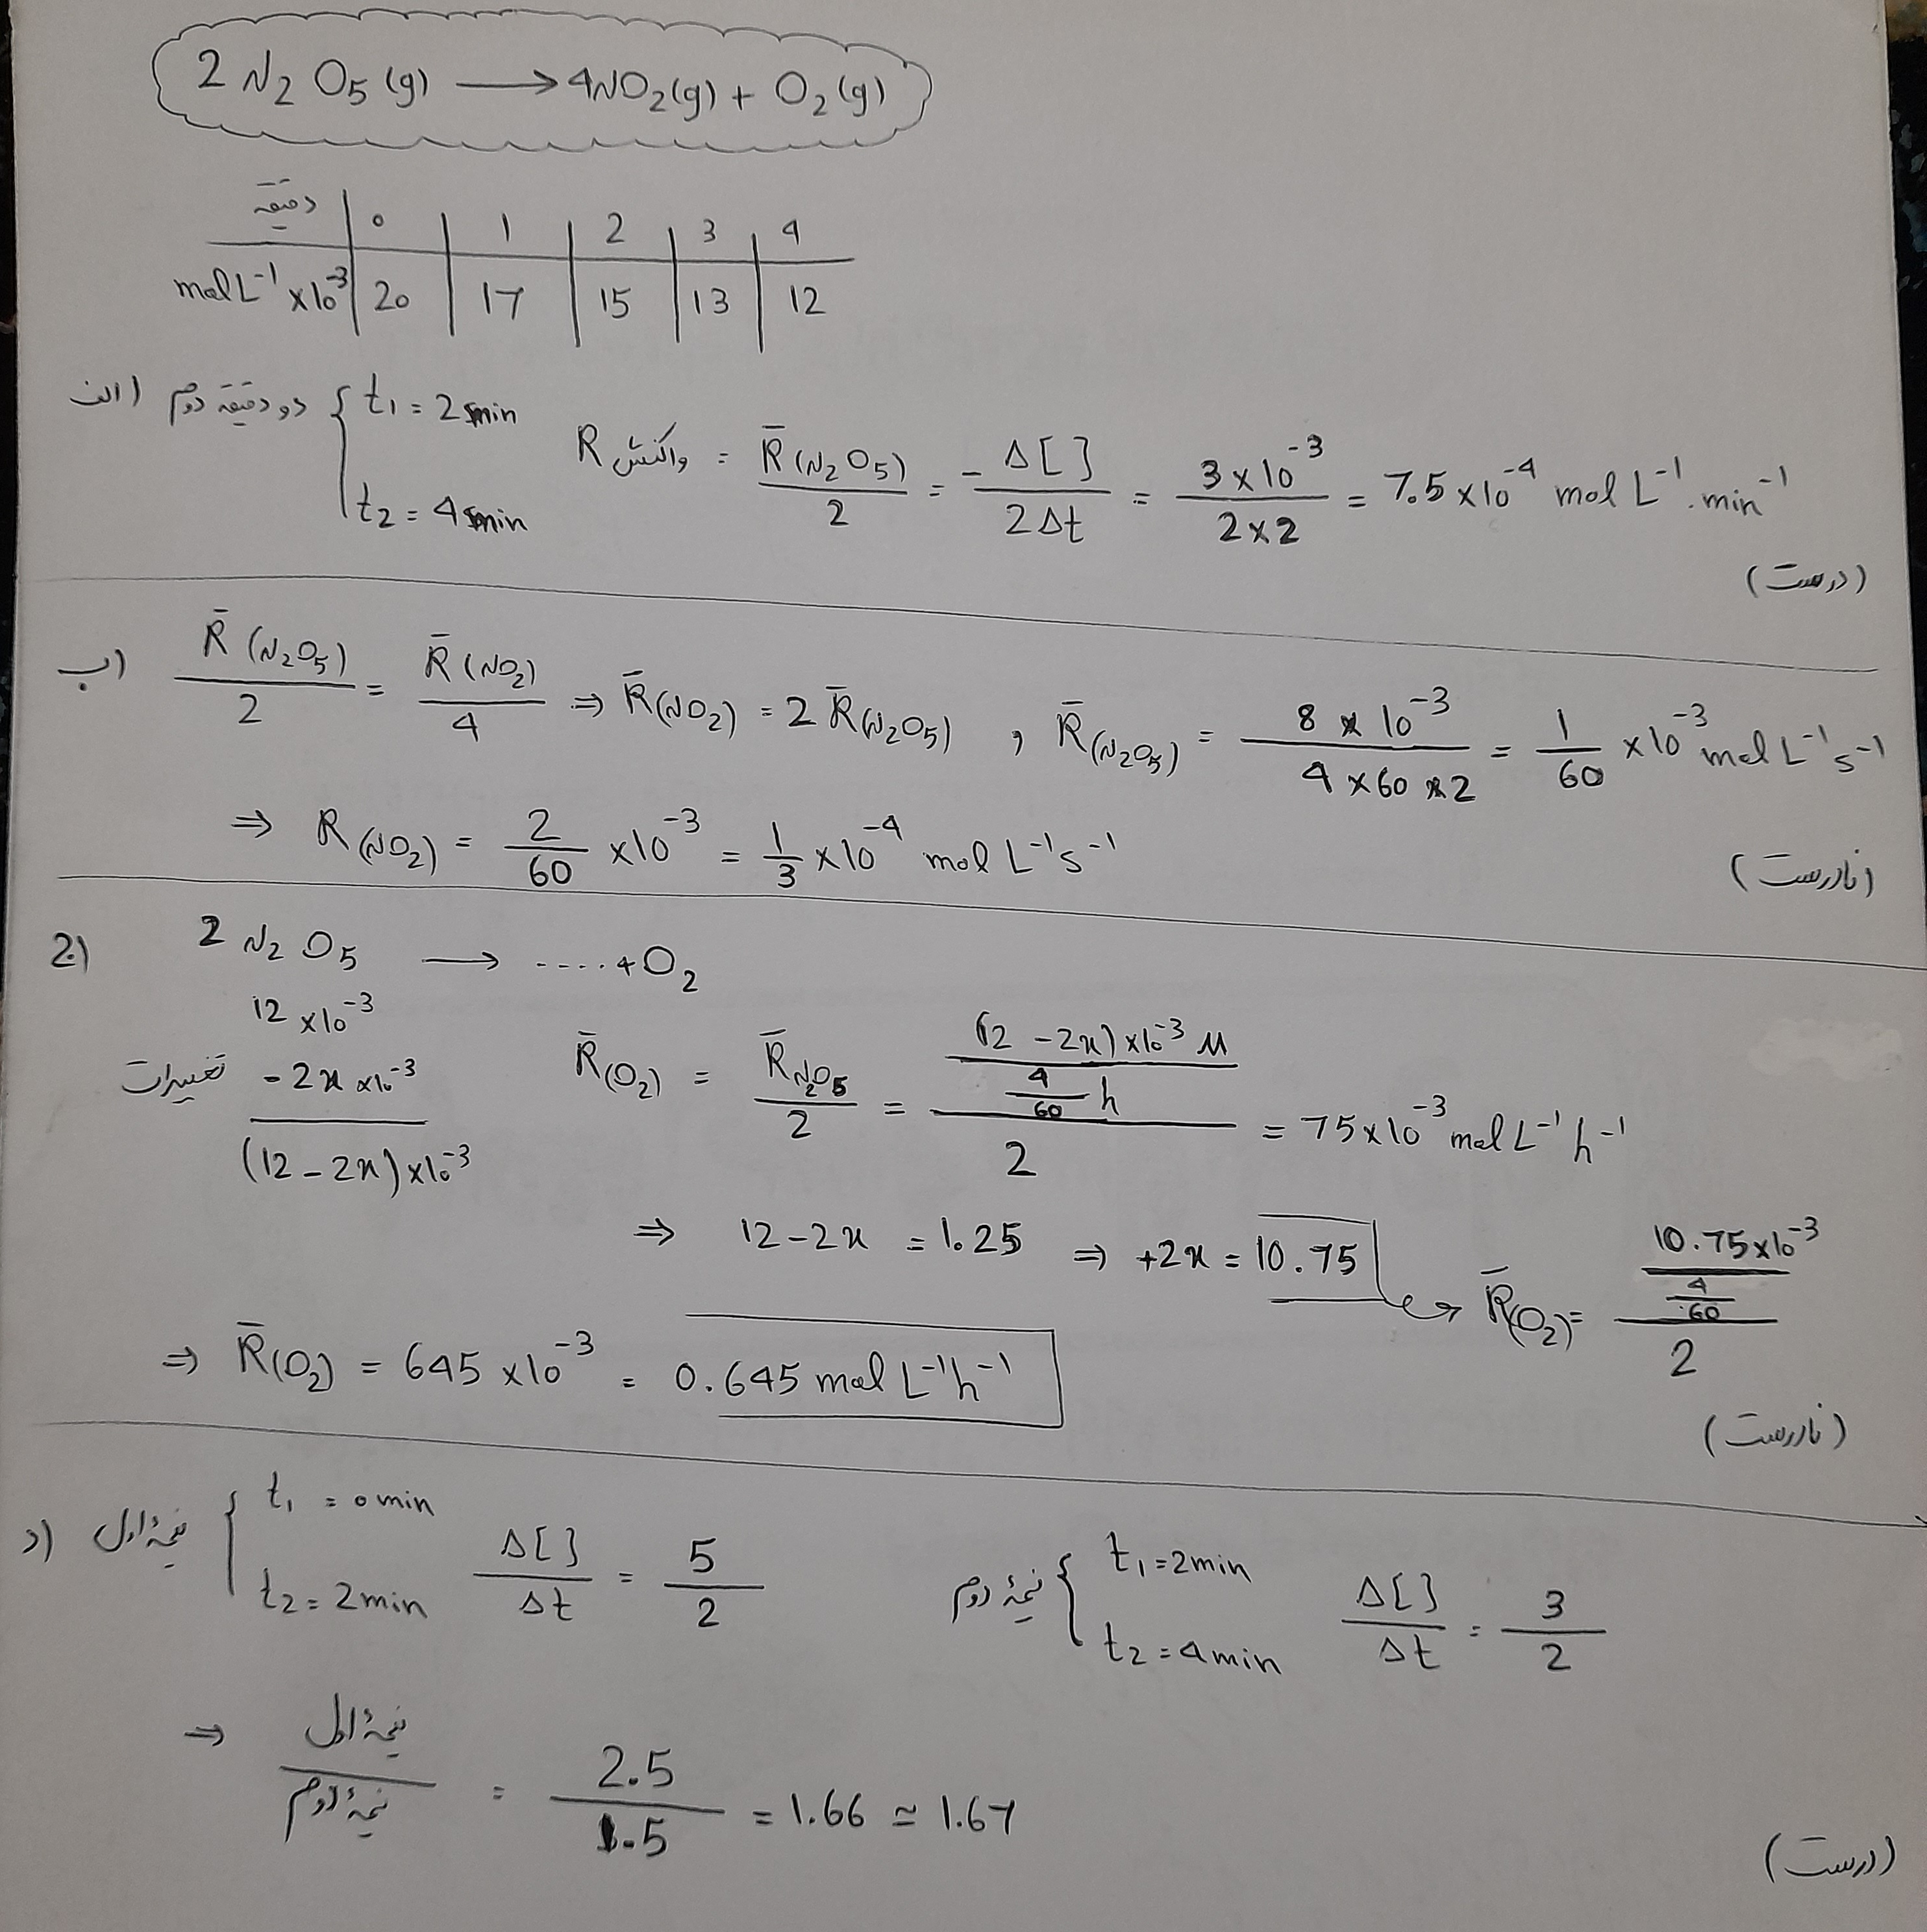 2 N₂O₅(g) ⟶ 4NO₂(g) + O₂(g)
دقیقه 0 1 2 3 4
mol L⁻¹ ×10⁻³ 20 17 15 13 12
الف) دو دقیقه دوم { t₁ = 2 min
t₂ = 4 min
R واکنش = R̄(N₂O₅)/2 = -Δ[ ]/2Δt = 3×10⁻³/2×2 = 7.5×10⁻⁴ mol L⁻¹.min⁻¹
(درست)
ب) R̄(N₂O₅)/2 = R̄(NO₂)/4 ⇒ R̄(NO₂) = 2 R̄(N₂O₅) , R̄(N₂O₅) = 8×10⁻³/4×60×2 = 1/60 ×10⁻³ mol L⁻¹s⁻¹
⇒ R(NO₂) = 2/60 ×10⁻³ = 1/3 ×10⁻⁴ mol L⁻¹s⁻¹
(نادرست)
ج) 2 N₂O₅ ⟶ ....+O₂
12 ×10⁻³
تغییرات -2x ×10⁻³
(12-2x)×10⁻³
R̄(O₂) = R̄N₂O₅/2 = ((12-2x)×10⁻³ M / (4/60 h))/2 = 75×10⁻³ mol L⁻¹ h⁻¹
⇒ 12-2x = 1.25 ⇒ +2x = 10.75 R̄(O₂) = (10.75×10⁻³/(4/60))/2
⇒ R̄(O₂) = 645 ×10⁻³ = 0.645 mol L⁻¹h⁻¹
(نادرست)
د) نیمهٔ اول { t₁ = 0 min
t₂ = 2 min
Δ[ ]/Δt = 5/2
نیمهٔ دوم { t₁ = 2 min
t₂ = 4 min
Δ[ ]/Δt = 3/2
⇒ نیمهٔ اول/نیمهٔ دوم = 2.5/1.5 = 1.66 ≃ 1.67
(درست)